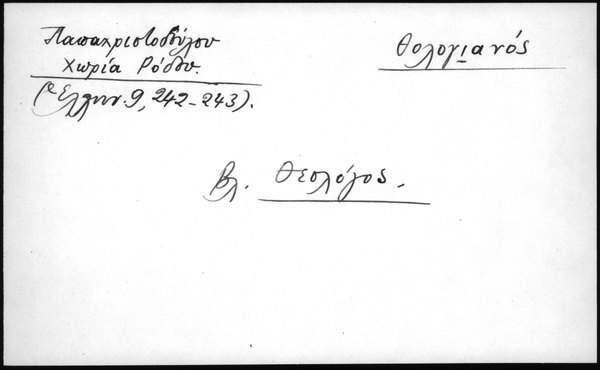 Παπαχριστοδούλου
Χωρία Ρόδου.
(Ἑλλην. 9, 242-243).
Θολογιανός
Βλ. Θεολόγος.